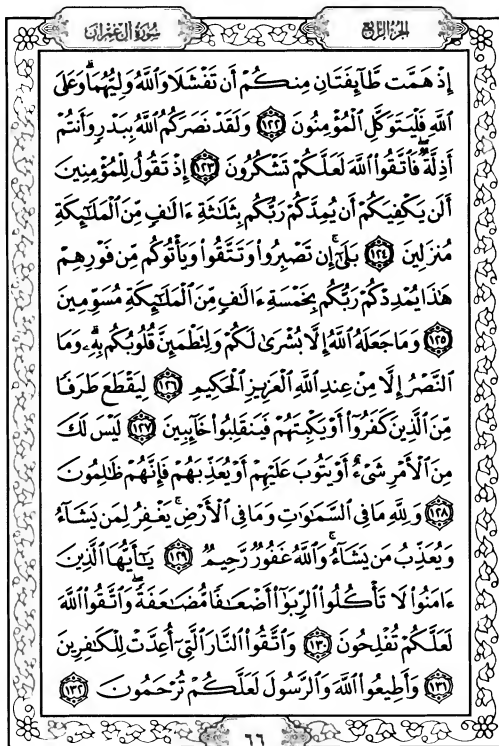 سُورَةُ آلِ عِمْرَانَ الجُزْءُ الرَّابِعُ
إِذْ هَمَّت طَّآئِفَتَانِ مِنكُمْ أَن تَفْشَلَا وَٱللَّهُ وَلِيُّهُمَاۗ وَعَلَى
ٱللَّهِ فَلْيَتَوَكَّلِ ٱلْمُؤْمِنُونَ ١٢٢ وَلَقَدْ نَصَرَكُمُ ٱللَّهُ بِبَدْرٍ وَأَنتُمْ
أَذِلَّةٌۖ فَٱتَّقُوا۟ ٱللَّهَ لَعَلَّكُمْ تَشْكُرُونَ ١٢٣ إِذْ تَقُولُ لِلْمُؤْمِنِينَ
أَلَن يَكْفِيَكُمْ أَن يُمِدَّكُمْ رَبُّكُم بِثَلَٰثَةِ ءَالَٰفٍ مِّنَ ٱلْمَلَٰٓئِكَةِ
مُنزَلِينَ ١٢٤ بَلَىٰٓۚ إِن تَصْبِرُوا۟ وَتَتَّقُوا۟ وَيَأْتُوكُم مِّن فَوْرِهِمْ
هَٰذَا يُمْدِدْكُمْ رَبُّكُم بِخَمْسَةِ ءَالَٰفٍ مِّنَ ٱلْمَلَٰٓئِكَةِ مُسَوِّمِينَ
١٢٥ وَمَا جَعَلَهُ ٱللَّهُ إِلَّا بُشْرَىٰ لَكُمْ وَلِتَطْمَئِنَّ قُلُوبُكُم بِهِۦۗ وَمَا
ٱلنَّصْرُ إِلَّا مِنْ عِندِ ٱللَّهِ ٱلْعَزِيزِ ٱلْحَكِيمِ ١٢٦ لِيَقْطَعَ طَرَفًا
مِّنَ ٱلَّذِينَ كَفَرُوٓا۟ أَوْ يَكْبِتَهُمْ فَيَنقَلِبُوا۟ خَآئِبِينَ ١٢٧ لَيْسَ لَكَ
مِنَ ٱلْأَمْرِ شَىْءٌ أَوْ يَتُوبَ عَلَيْهِمْ أَوْ يُعَذِّبَهُمْ فَإِنَّهُمْ ظَٰلِمُونَ
١٢٨ وَلِلَّهِ مَا فِى ٱلسَّمَٰوَٰتِ وَمَا فِى ٱلْأَرْضِۚ يَغْفِرُ لِمَن يَشَآءُ
وَيُعَذِّبُ مَن يَشَآءُۚ وَٱللَّهُ غَفُورٌ رَّحِيمٌ ١٢٩ يَٰٓأَيُّهَا ٱلَّذِينَ
ءَامَنُوا۟ لَا تَأْكُلُوا۟ ٱلرِّبَوٰٓا۟ أَضْعَٰفًا مُّضَٰعَفَةًۖ وَٱتَّقُوا۟ ٱللَّهَ
لَعَلَّكُمْ تُفْلِحُونَ ١٣٠ وَٱتَّقُوا۟ ٱلنَّارَ ٱلَّتِىٓ أُعِدَّتْ لِلْكَٰفِرِينَ
١٣١ وَأَطِيعُوا۟ ٱللَّهَ وَٱلرَّسُولَ لَعَلَّكُمْ تُرْحَمُونَ ١٣٢
٦٦